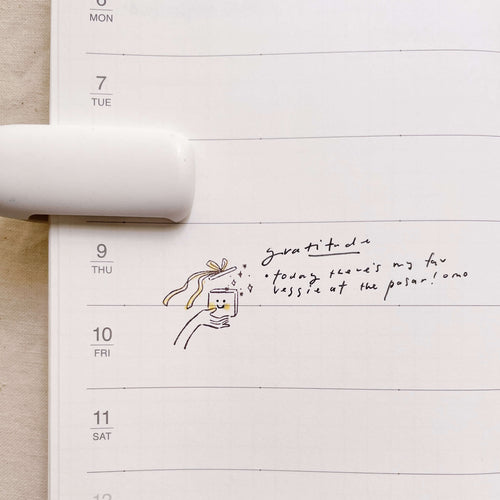 6
MON
7
TUE
9
THU
gratitude
• today there's my fav
veggie at the pasar! omo
10
FRI
11
SAT
12